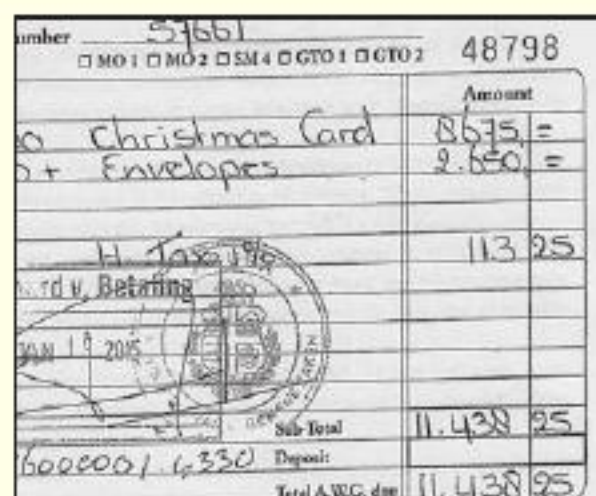 umber 57661
☐ MO 1 ☐ MO 2 ☐ SM 4 ☐ GTO 1 ☐ GTO 2 48798
Amount
Christmas Card 8675, =
+ Envelopes 2.650, =
H. Tax 1% 113 25
rd v. Betaling
JUN 18 2015
Sub Total 11.438 25
6000001.6330 Deposit
Total A.W.G. due 11.438 25